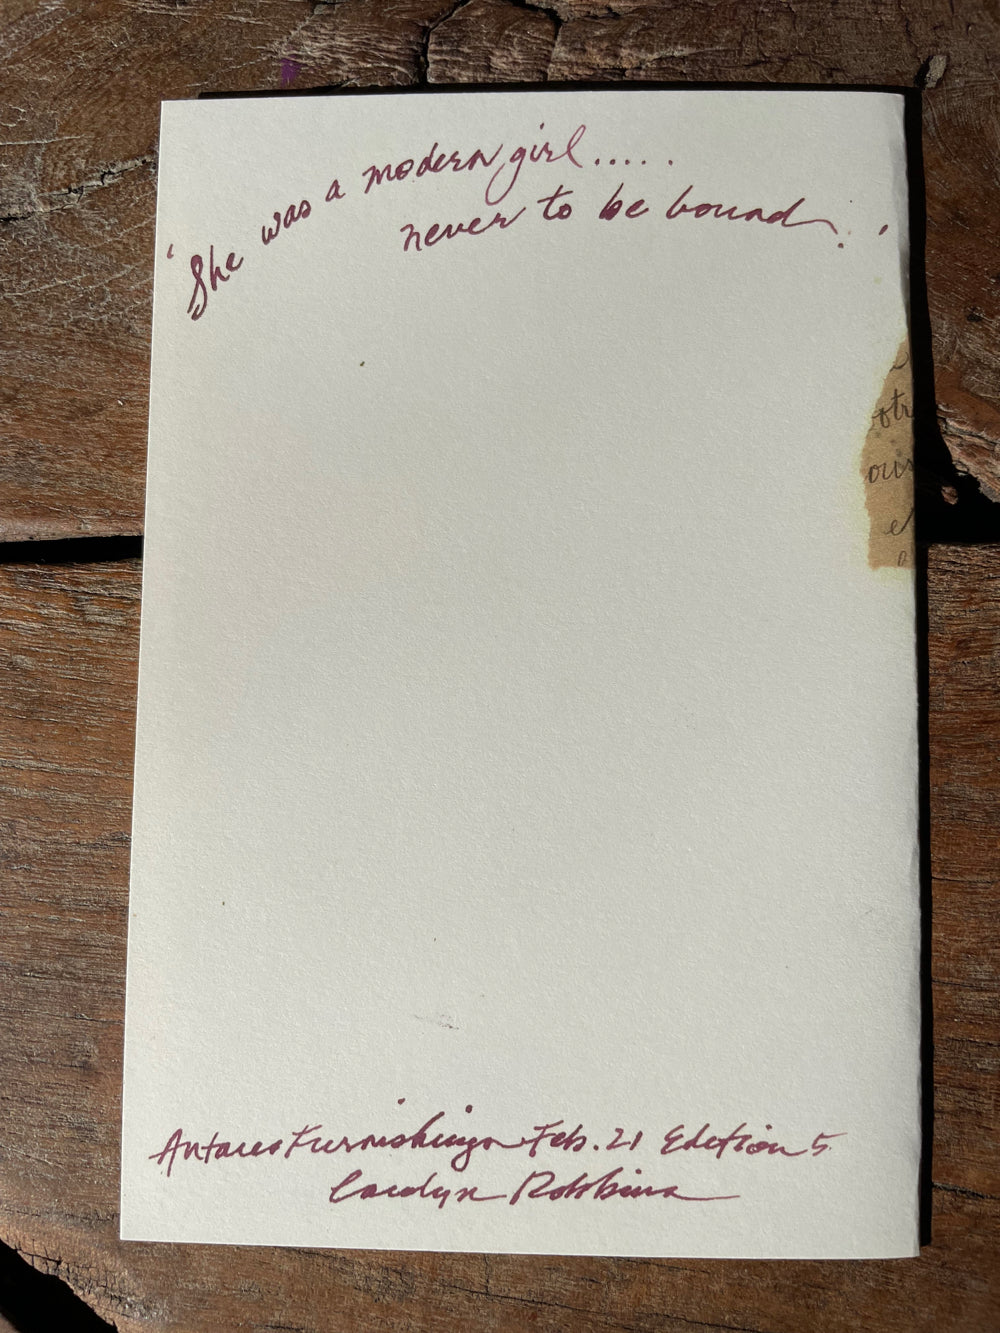 'She was a modern girl.....
never to be bound.'
otr
ouis
e
Antares Furnishings Feb. 21 Edition 5
Carolyn Robbins